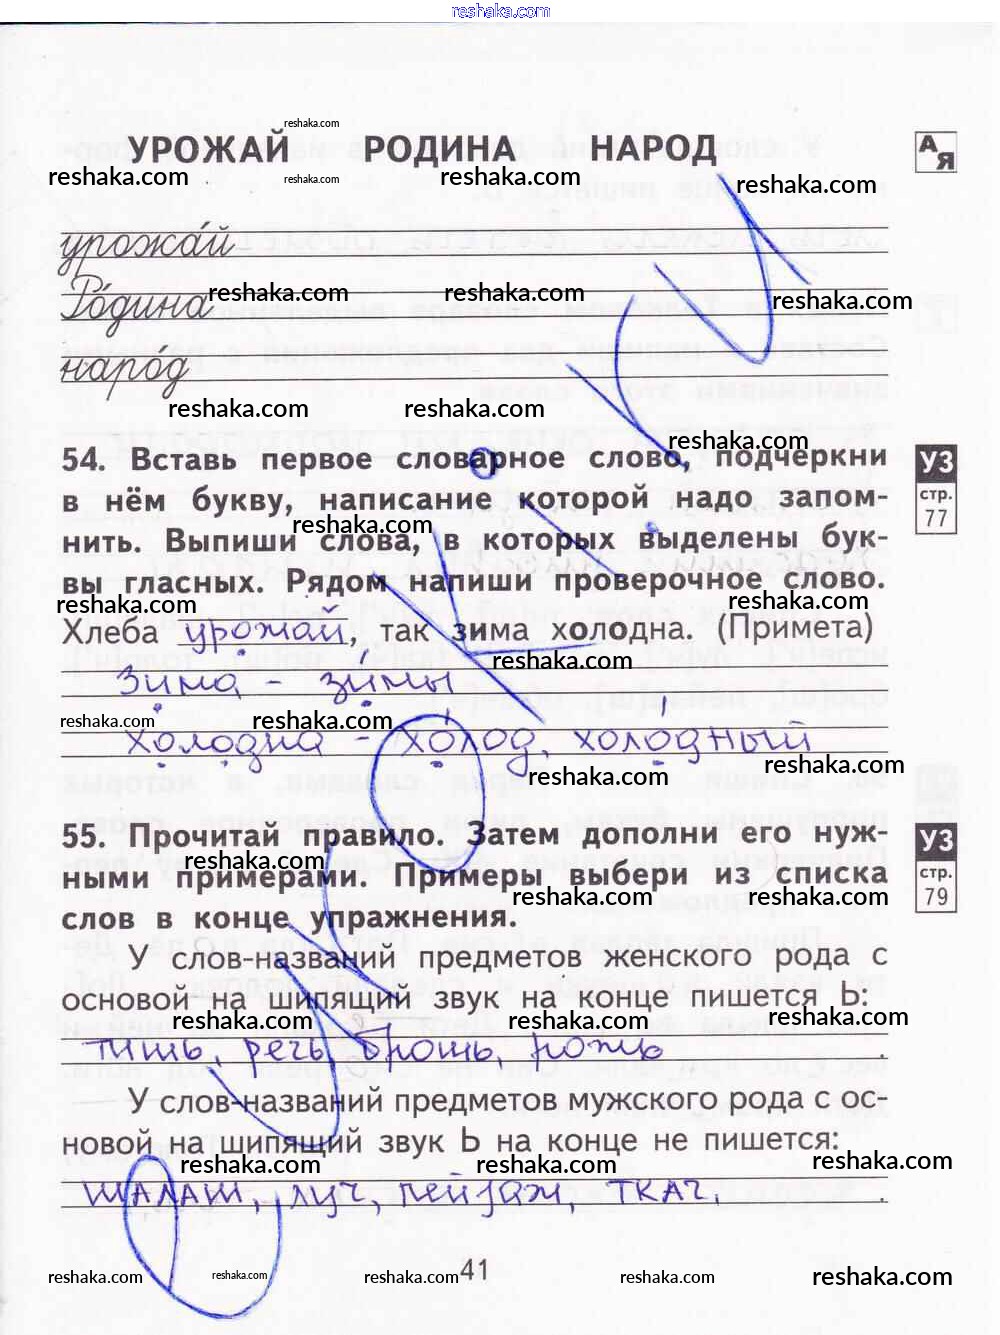 reshaka.com
reshaka.com
УРОЖАЙ РОДИНА НАРОД
А
Я
reshaka.com reshaka.com reshaka.com reshaka.com
урожай
Родина
reshaka.com reshaka.com reshaka.com
народ
reshaka.com reshaka.com
reshaka.com
54. Вставь первое словарное слово, подчеркни
УЗ
в нём букву, написание которой надо запом-
стр.
77
reshaka.com
нить. Выпиши слова, в которых выделены бук-
вы гласных. Рядом напиши проверочное слово.
reshaka.com reshaka.com
Хлеба урожай, так зима холодна. (Примета)
reshaka.com
Зима - зимы
reshaka.com reshaka.com
холодна - холод, холодный
reshaka.com reshaka.com
55. Прочитай правило. Затем дополни его нуж-
УЗ
reshaka.com reshaka.com
ными примерами. Примеры выбери из списка
стр.
79
reshaka.com reshaka.com
слов в конце упражнения.
У слов-названий предметов женского рода с
основой на шипящий звук на конце пишется Ь:
reshaka.com reshaka.com reshaka.com
тишь, речь, брошь, рожь.
У слов-названий предметов мужского рода с ос-
новой на шипящий звук Ь на конце не пишется:
reshaka.com reshaka.com reshaka.com
шалаш, луч, пейзаж, ткач.
41
reshaka.com reshaka.com reshaka.com reshaka.com reshaka.com